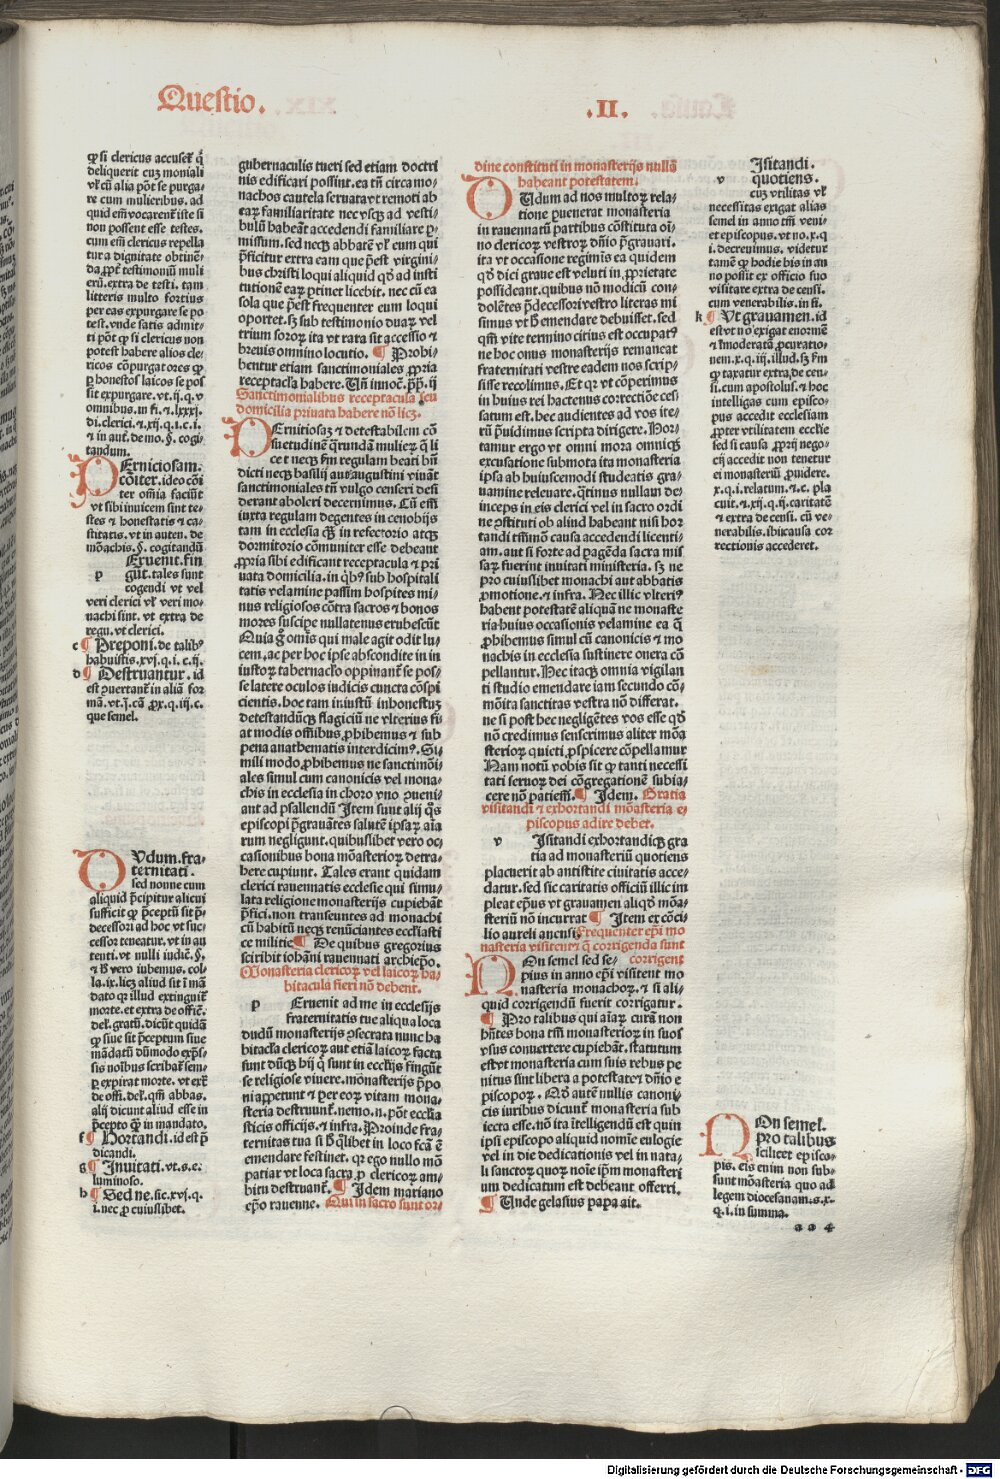 Questio.
.II.
ꝙ si clericus accuset᷑ q̇
deliquerit cuꝫ moniali
vl̓ cū alia pōt se purga-
re cum mulieribus. ad
quid em̄ vocarent᷑ iste si
non possent esse testes.
cum em̄ clericus repella
tur a dignitate obtinē-
da ꝓpt̓ testimoniū muli
erū. extra de testi. tam
litteris multo fortius
per eas expurgare se po
test. vnde satis admit-
ti pōt ꝙ si clericus non
potest habere alios cle-
ricos cōpurgatores ꝙ
ꝑ honestos laicos se pos
sit expurgare. vt .ij. q. v
omnibus. in fi. ⁊ .lxxxj.
di. clerici. ⁊ .xij. q. i. c. i.
⁊ in aut̓. de mo. §. cogi-
tandum.
PErniciosam.
cōiter. ideo cōi
ter om̄ia faciūt
vt sibi inuicem sint te-
stes ⁊ honestatis ⁊ ca-
stitatis. vt in auten. de
mōachis. §. cogitandū
Eruenit. fin
p gūt. tales sunt
cogendi vt vel
veri clerici vl̓ veri mo-
nachi sint. vt extra de
regu. vt clerici.
c ¶ Preponi. de talibꝰ
habuistis. xvj. q. i. c. ij.
d ¶ Destruantur. id
est ꝑuertant᷑ in aliā for
mā. vt .j. eā ꝓx. q. iij. c.
que semel.
OVdum. fra-
ternitati.
sed nonne cum
aliquid p̄cipitur alicui
sufficit ꝙ p̄ceptū sit p̄-
decessori ad hoc vt suc-
cessor teneatur. vt in au
tenti. vt nulli iudic̄. §.
⁊ B vero iubemus. col-
la. ix. licꝫ aliud sit ī mā
dato qꝛ illud extinguit᷑
morte. et extra de offic̄.
del̓. gratū. dicūt quidā
ꝙ siue sit p̄ceptum siue
mādatū dūmodo exp̄s-
sis noībus scribat᷑ sem-
ꝑ expirat morte. vt extͣ
de offi. del̓. qm̄ abbas.
alij dicunt aliud esse in
p̄cepto qͣ in mandato.
f ¶ Hortandi. id est p̄
dicandi.
g ¶ Inuitati. vt. s. e.
luminoso.
h ¶ Sed ne. sic. xvj. q.
i. nec ꝓ cuiuslibet.
gubernaculis tueri sed etiam doctri
nis edificari possint. ea tn̄ circa mo-
nachos cautela seruata vt remoti ab
eaꝝ familiaritate nec vsqꝫ ad vesti-
bulū habeāt accedendi familiare ꝑ-
missum. sed necꝫ abbatē vl̓ eum qui
p̄ficitur extra eam que p̄est virgini-
bus christi loqui aliquid qd̓ ad insti
tutionē eaꝝ ꝑtinet licebit. nec cū ea
sola que p̄est frequenter eum loqui
oportet. sꝫ sub testimonio duaꝝ vel
trium soroꝝ ita vt rata sit accessio ⁊
breuis omnino locutio. ¶ Prohi-
bentur etiam sanctimoniales ꝓpria
receptacl̓a habere. Vn̄ innoc̄. p̄p̄. ij
Sanctimonialibus receptacula seu
domicilia priuata habere nō licꝫ.
PErnitiosaꝫ ⁊ detestabilem cō
suetudinē qrūndā mulieꝝ q̄ li
cet necꝫ fm̄ regulam beati bn̄
dicti necꝫ basilij aut augustini viuāt
sanctimoniales tn̄ vulgo censeri desi
derant aboleri decernimus. Cū em̄
iuxta regulam degentes in cenobijs
tam in ecclesia qͣ in refectorio atqꝫ
dormitorio cōmuniter esse debeant
ꝓpria sibi edificant receptacula ⁊ pri
uata domicilia. in qͥbꝰ sub hospitali
tatis velamine passim hospites mi-
nus religiosos cōtra sacros ⁊ bonos
mores suscipe nullatenus erubescūt
Quia g̊ om̄is qui male agit odit lu-
cem. ac per hoc ipse abscondite in in
iustoꝝ tabernacl̓o oppinant᷑ se pos-
se latere oculos iudicis cuncta cōspi
cientis. hoc tam iniustū inhonestuꝫ
detestandūqꝫ flagiciū ne vlterius fi-
at modis om̄ibus ꝓhibemus ⁊ sub
pena anathematis interdicimꝰ. Si
mili modo ꝓhibemus ne sanctimōi-
ales simul cum canonicis vel mona-
chis in ecclesia in choro vno ꝯueni-
ant ad psallendū Item sunt alij qͥs
episcopi p̄grauātes salutē ipsaꝝ aīa
rum negligunt. quibuslibet vero oc-
casionibus bona mōasterioꝝ detra-
here cupiunt. Tales erant quidam
clerici rauennatis ecclesie qui simu-
lata religione monasterijs cupiebāt
p̄fici. non transeuntes ad monachi
cū habitū necꝫ renūciantes eccliasti
ce militie ¶ De quibus gregorius
scribit iohāni rauennati archiep̄o.
Monasteria clericoꝝ vel laicoꝝ ha-
bitacula fieri nō debent.
p Eruenit ad me in ecclesijs
fraternitatis tue aliqua loca
dudū monasterijs ꝯsecrata nunc ha
bitacl̓a clericoꝝ aut etiā laicoꝝ facta
sunt dūcꝫ hij q̄ sunt in ecclijs fingūt
se religiose viuere. monasterijs p̄po
ni appetunt ⁊ per eoꝝ vitam mona-
steria destruunt᷑. nemo. n. pōt ecclia
sticis officijs. ⁊ infra. Proinde fra-
ternitas tua si B qͥlibet in loco fcā ē
emendare festinet. qꝛ ego nullo mō
patiar vt loca sacra ꝓ clericoꝝ am-
bitu destruant᷑. ¶ Idem mariano
ep̄o rauenne. Qui in sacro sunt or-
dine constituti in monasterijs nullā
habeant potestatem.
OUdum ad nos multoꝝ rela-
tione ꝑuenerat monasteria
in rauennatū partibus cōstituta oī-
no clericoꝝ vestroꝝ dn̄io p̄grauari.
ita vt occasione regimīs ea quidem
qd̓ dici graue est veluti in ꝓprietate
possideant. quibus nō modicū con-
dolētes p̄decessori vestro literas mi
simus vt B emendare debuisset. sed
qm̄ vite termino citius est occupatꝰ
ne hoc onus monasterijs remaneat
fraternitati vestre eadem nos scrip-
sisse recolimus. Et qꝛ vt cōperimus
in huius rei hactenus correctiōe ces-
satum est. hec audientes ad vos ite-
rū p̄uidimus scripta dirigere. Hor-
tamur ergo vt omni mora omniqꝫ
excusatione submota ita monasteria
ipsa ab huiuscemodi studeatis gra-
uamine releuare. qͣtinus nullam de-
inceps in eis clerici vel in sacro ordi
ne ꝯstituti ob aliud habeant nisi hor
tandi tm̄mō causa accedendi licenti-
am. aut si forte ad ꝑagēda sacra mis
saꝝ fuerint inuitati ministeria. sꝫ ne
pro cuiuslibet monachi aut abbatis
ꝓmotione. ⁊ infra. Nec illic vlteriꝰ
habent potestatē aliquā ne monaste
ria huius occasionis velamine ea q̄
ꝓhibemus simul cū canonicis ⁊ mo
nachis in ecclesia sustinere onera cō
pellantur. Nec itacꝫ omnia vigilan
ti studio emendare iam secundo cō-
mōita sanctitas vestra nō differat.
ne si post hec negligētes vos esse qd̓
nō credimus senserimus aliter mōa
sterioꝝ quieti ꝓspicere cōpellamur
Nam notū vobis sit ꝙ tanti necessi
tati seruoꝝ dei cōgregationē subia-
cere nō patiem̄. ¶ Idem. Gratia
visitandi ⁊ exhortandi mōasteria e-
piscopus adire debet.
v Isitandi exhortandicꝫ gra
tia ad monasteriū quotiens
placuerit ab antistite ciuitatis acce-
datur. sed sic caritatis officiū illic im
pleat ep̄us vt grauamen aliqd̓ mōa-
steriū nō incurrat ¶ Item ex cōci-
lio aureli anensi. Frequenter ep̄i mo
nasteria visitent ⁊ q̄ corrigenda sunt
NOn semel sed se- corrigent
pius in anno ep̄i visitent mo
nasteria monachoꝝ. ⁊ si ali-
quid corrigendū fuerit corrigatur.
¶ Pro talibus qui aīaꝝ curā non
hn̄tes bona tm̄ monasterioꝝ in suos
vsus conuertere cupiebāt. statutum
est vt monasteria cum suis rebus pe
nitus sint libera a potestate ⁊ dn̄io e
piscopoꝝ. Qd̓ autē nullis canoni-
cis iuribus dicunt᷑ monasteria sub
iecta esse. nō ita intelligendū est quin
ipsi episcopo aliquid nomīe eulogie
vel in die dedicationis vel in nata-
li sanctoꝝ quoꝝ noīe ip̄m monasteri
um dedicatum est debeant offerri.
¶ Unde gelasius papa ait.
Isitandi.
v quotiens.
cuꝫ vtilitas vl̓
necessitas exigat alias
semel in anno tm̄ veni-
et episcopus. vt no. x. q
i. decreuimus. videtur
tamē ꝙ hodie bis in an
no possit ex officio suo
visitare extra de censi.
cum venerabilis. in fi.
k ¶ Vt grauamen. id
est vt nō exigat enormē
⁊ īmoderatā ꝓcuratio-
nem. x. q. iij. illud. sꝫ fm̄
ꝙ taxatur extra. de cen-
si. cum apostolus. ⁊ hoc
intelligas cum episco-
pus accedit ecclesiam
ꝓpter vtilitatem ecclie
sed si causa ꝓprij nego-
cij accedit non tenetur
ei monasteriū ꝓuidere.
x. q. i. relatum. ⁊ c. pla
cuit. ⁊ .xij. q. ij. caritatē
⁊ extra de censi. cū ve-
nerabilis. ibi causa cor
rectionis accederet.
NOn semel.
pro talibus
scilicet episco-
pis. eis enim non sub-
sunt mōasteria quo ad
legem diocesanam. s. x.
q. i. in summa.
a a 4
Digitalisierung gefördert durch die Deutsche Forschungsgemeinschaft - DFG